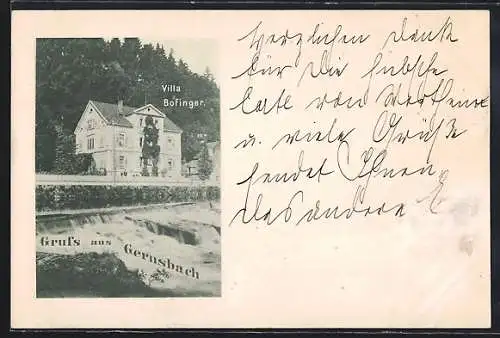 Villa
Bofinger.
Gruſs aus Gernsbach
Herzlichen Dank
für die hübsche
Carte von Wertheim
u. viele Grüße
sendet Ihnen
das andere E